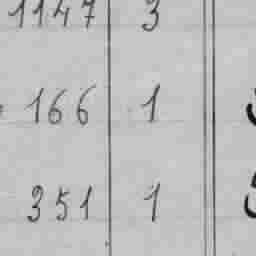 1147 3
166 1
351 1